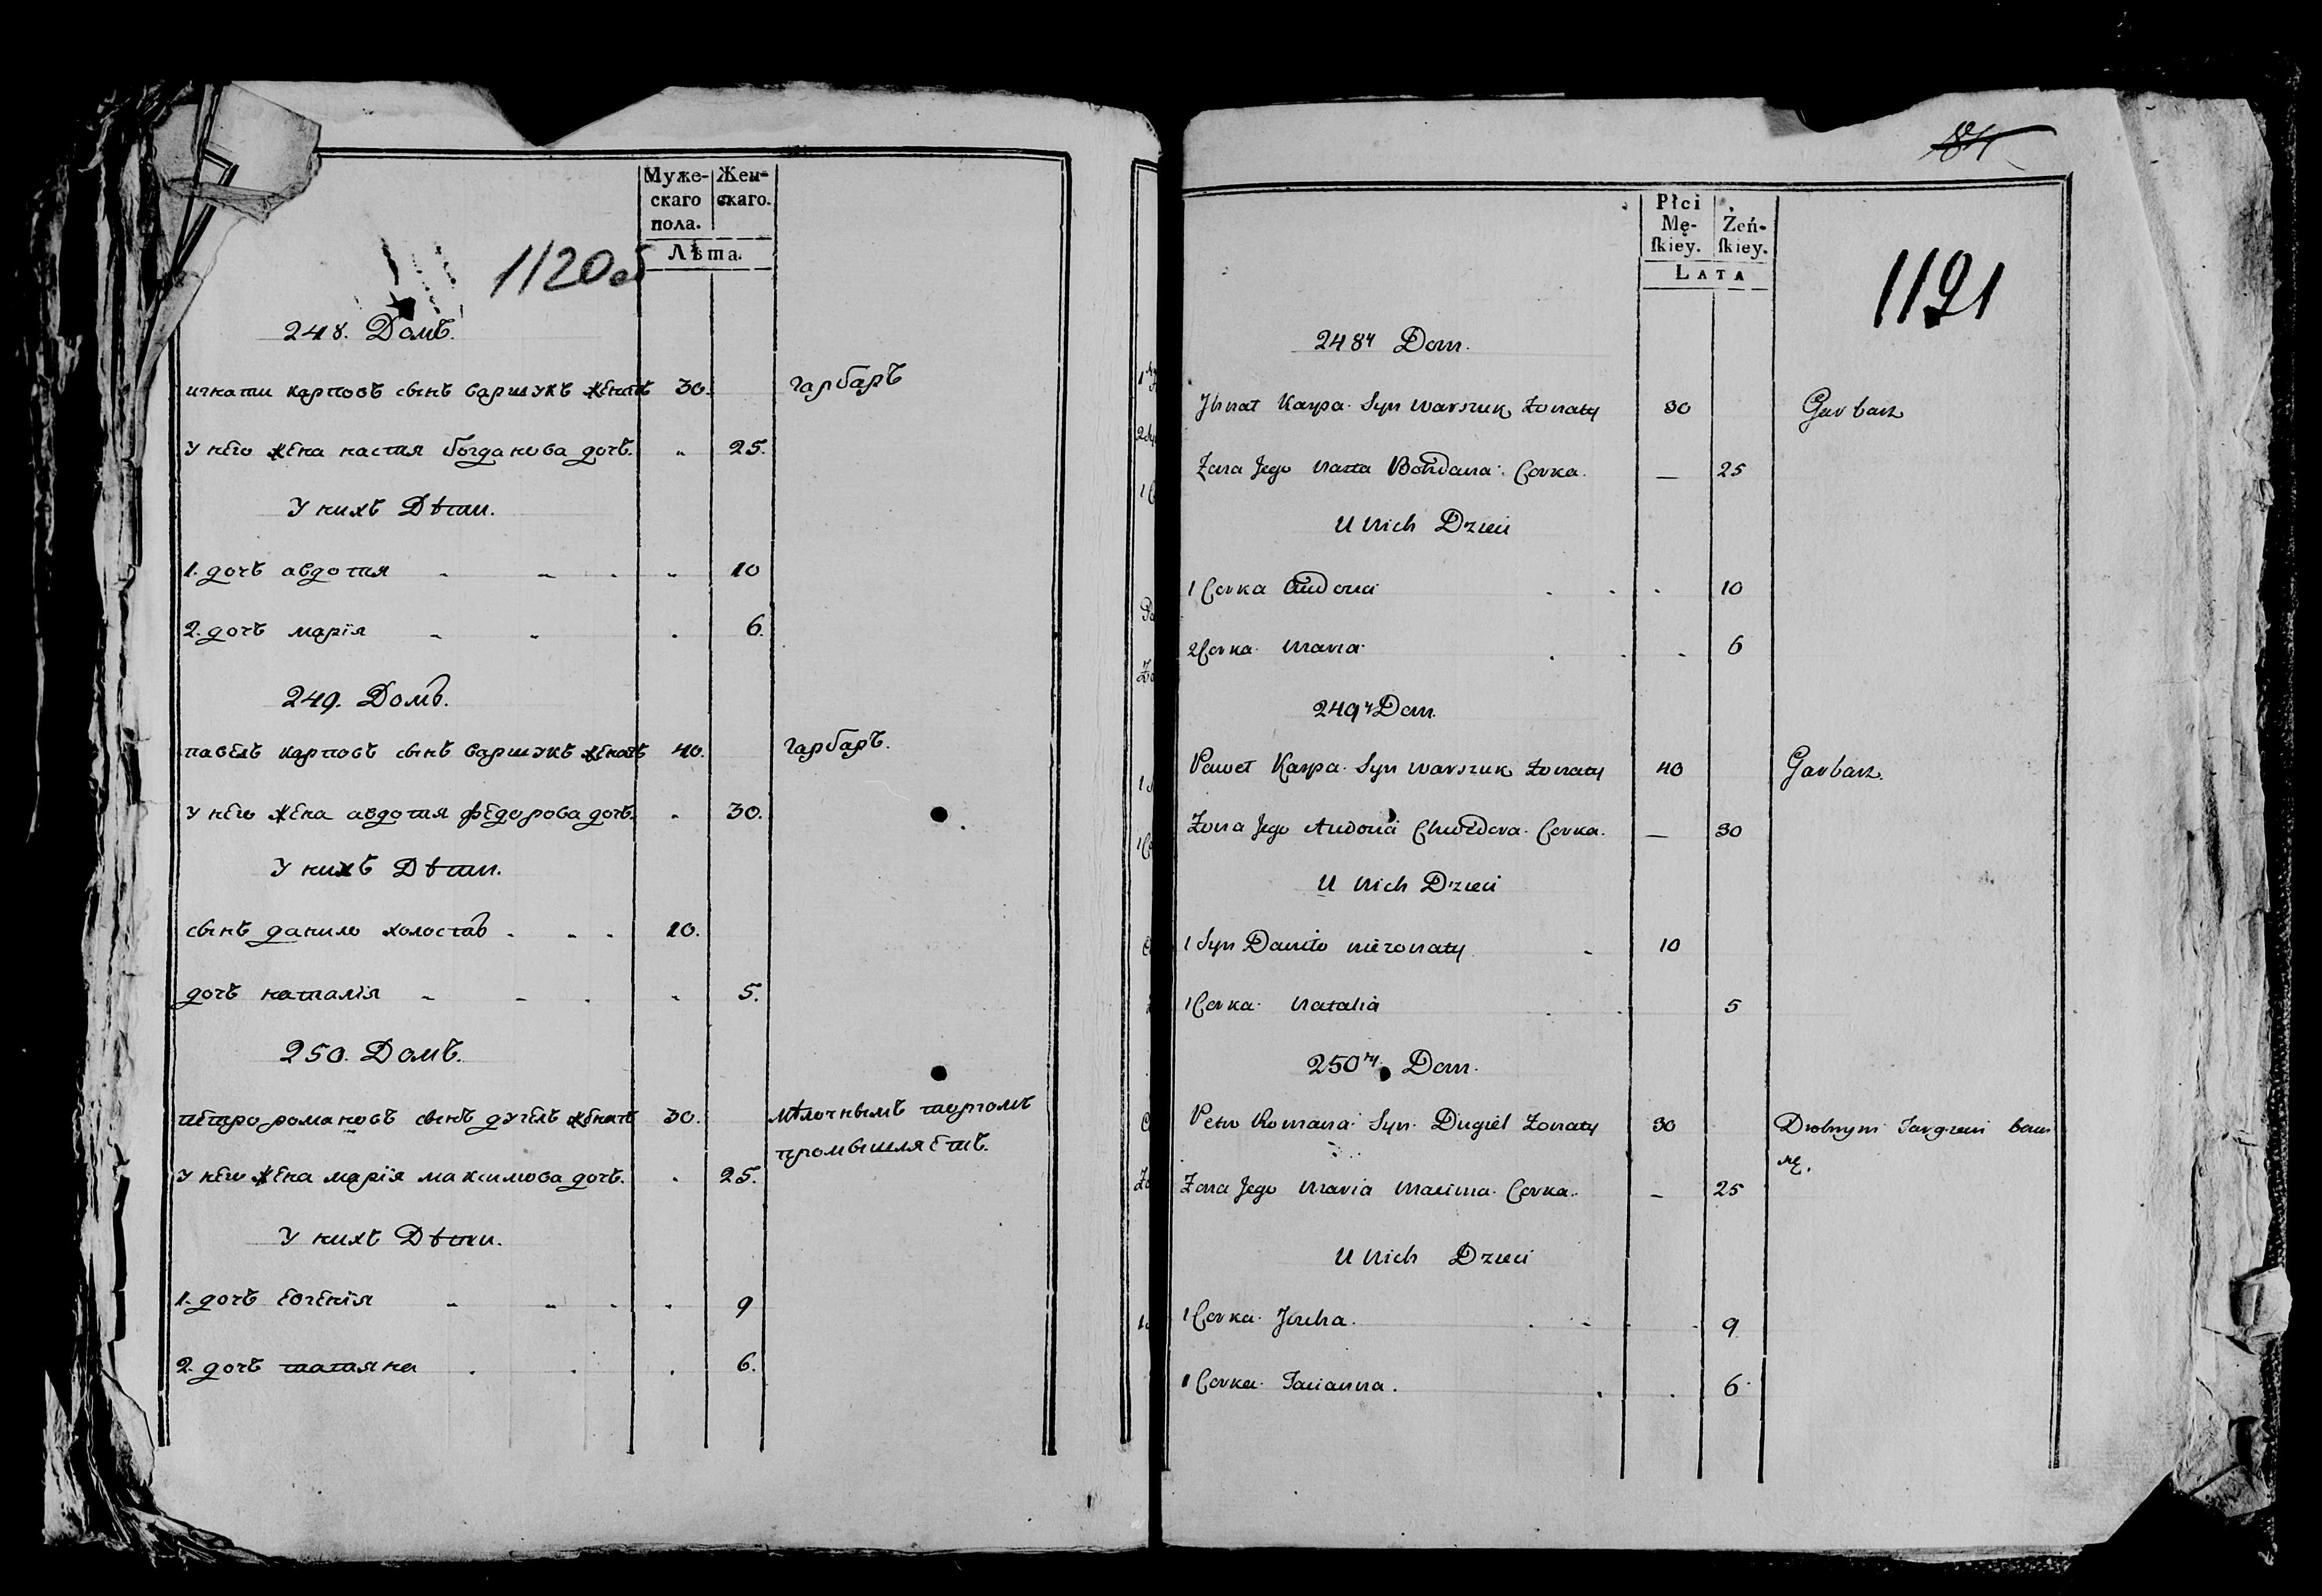 Муже-
скаго
пола.
Жен-
скаго.
Лѣта.
1120об
248. Домъ.
игнати карповъ сынъ варшукъ женатъ 30. гарбаръ
у него жена настя богданова дочь. „ 25.
У нихъ Дѣти.
1. дочь авдотя „ 10
2. дочь марія 6.
249. Домъ.
павелъ карповъ сынъ варшукъ женатъ 40. гарбаръ.
у него жена авдотя федорова дочь. 30.
У нихъ Дѣти.
сынъ данило холостъ 10.
дочь наталія „ 5.
250. Домъ.
петро романовъ сынъ дугель женатъ 30. мѣлочнымъ торгомъ
промышляетъ.
у него жена марія максимова дочь. 25.
У нихъ Дѣти.
1. дочь евгенія 9
2. дочь татяна 6.
84
Płci
Mę-
ſkiey.
Żeń-
ſkiey.
LATA
1121
248y Dom.
Ihnat Karpa Syn Warszuk Zonaty 30 Garbarz
Zona Jego Nasta Bohdana Corka. — 25
U Nich Dzieci
1 Corka Audocia 10
2 Corka Maria 6
249y Dom.
Paweł Karpa Syn Warszuk Zonaty 40 Garbarz.
Zona Jego Audocia Chwedora Corka. — 30
U Nich Dzieci
1 Syn Daniło niezonaty 10
1 Corka Natalia 5
250ty Dom.
Petro Romana Syn Dugiel Zonaty 30 Drobnym Targiem bawi
się.
Zona Jego Maria Macima Corka. — 25
U Nich Dzieci
1 Corka Jeucha. 9
1 Corka Tacianna. 6